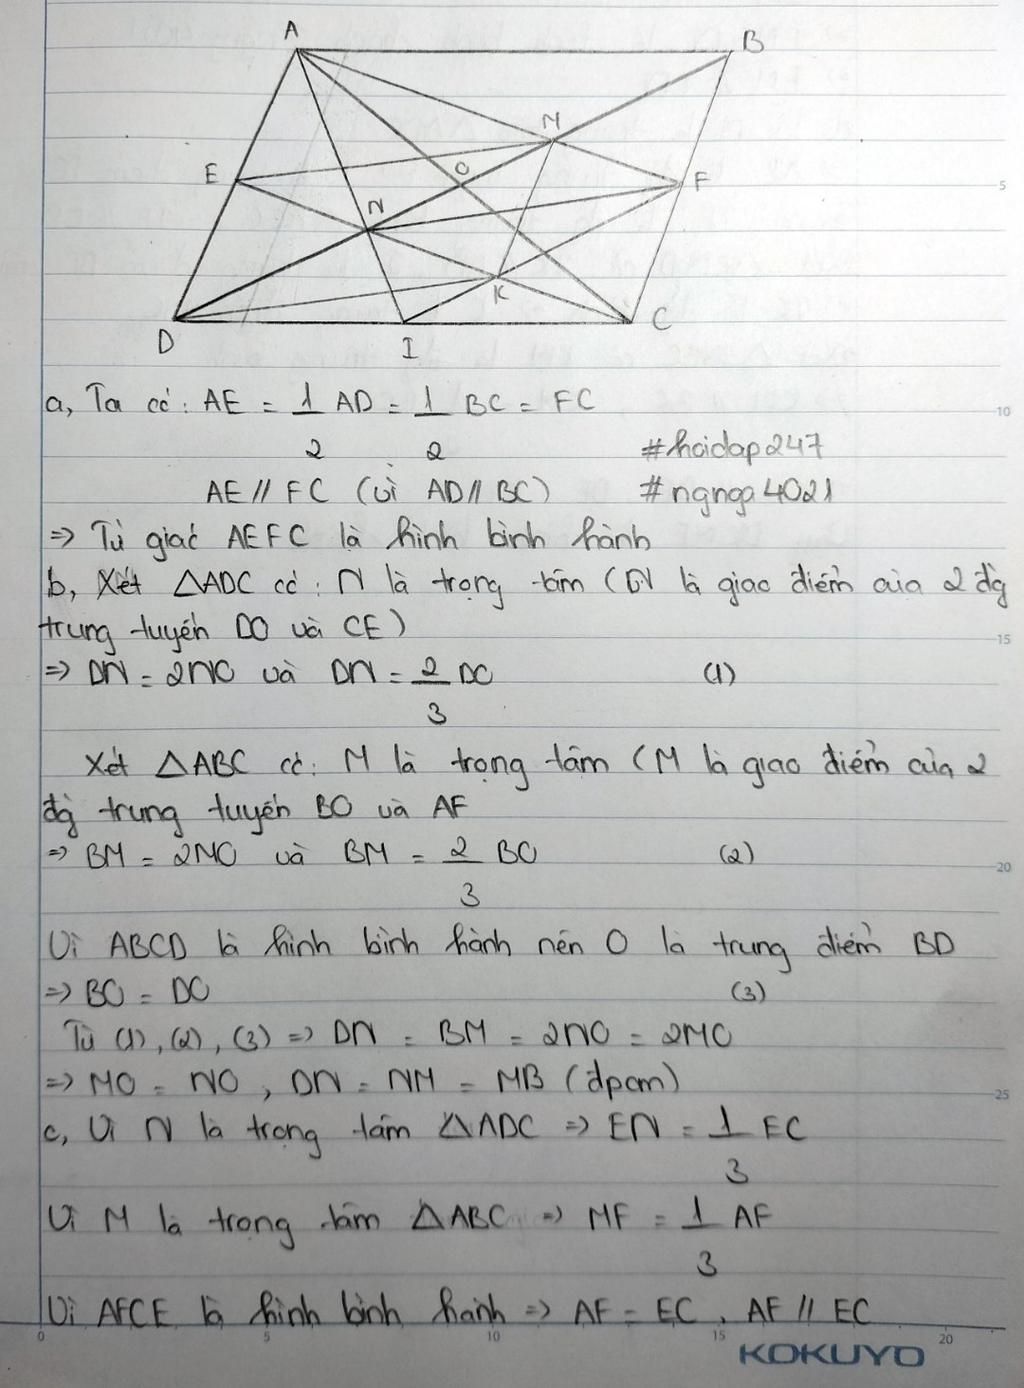 A
B
M
E
O
F
N
K
D
I
C
5
a, Ta có: AE = 1/2 AD = 1/2 BC = FC
10
#hoidap247
AE // FC (vì AD // BC)
#ngnga4021
=> Tứ giác AEFC là hình bình hành
b, Xét △ADC có: N là trọng tâm (N là giao điểm của 2 đg
trung tuyến DO và CE)
15
=> DN = 2NO và DN = 2/3 DO (1)
Xét △ABC có: M là trọng tâm (M là giao điểm của 2
đg trung tuyến BO và AF
=> BM = 2MO và BM = 2/3 BO (2)
20
Vì ABCD là hình bình hành nên O là trung điểm BD
=> BO = DO (3)
Từ (1), (2), (3) => DN = BM = 2NO = 2MO
=> MO = NO, DN = NM = MB (đpcm)
25
c, Vì N là trọng tâm △ADC => EN = 1/3 EC
Vì M là trọng tâm △ABC => MF = 1/3 AF
Vì AFCE là hình bình hành => AF = EC, AF // EC
0 5 10 15 20
KOKUYO